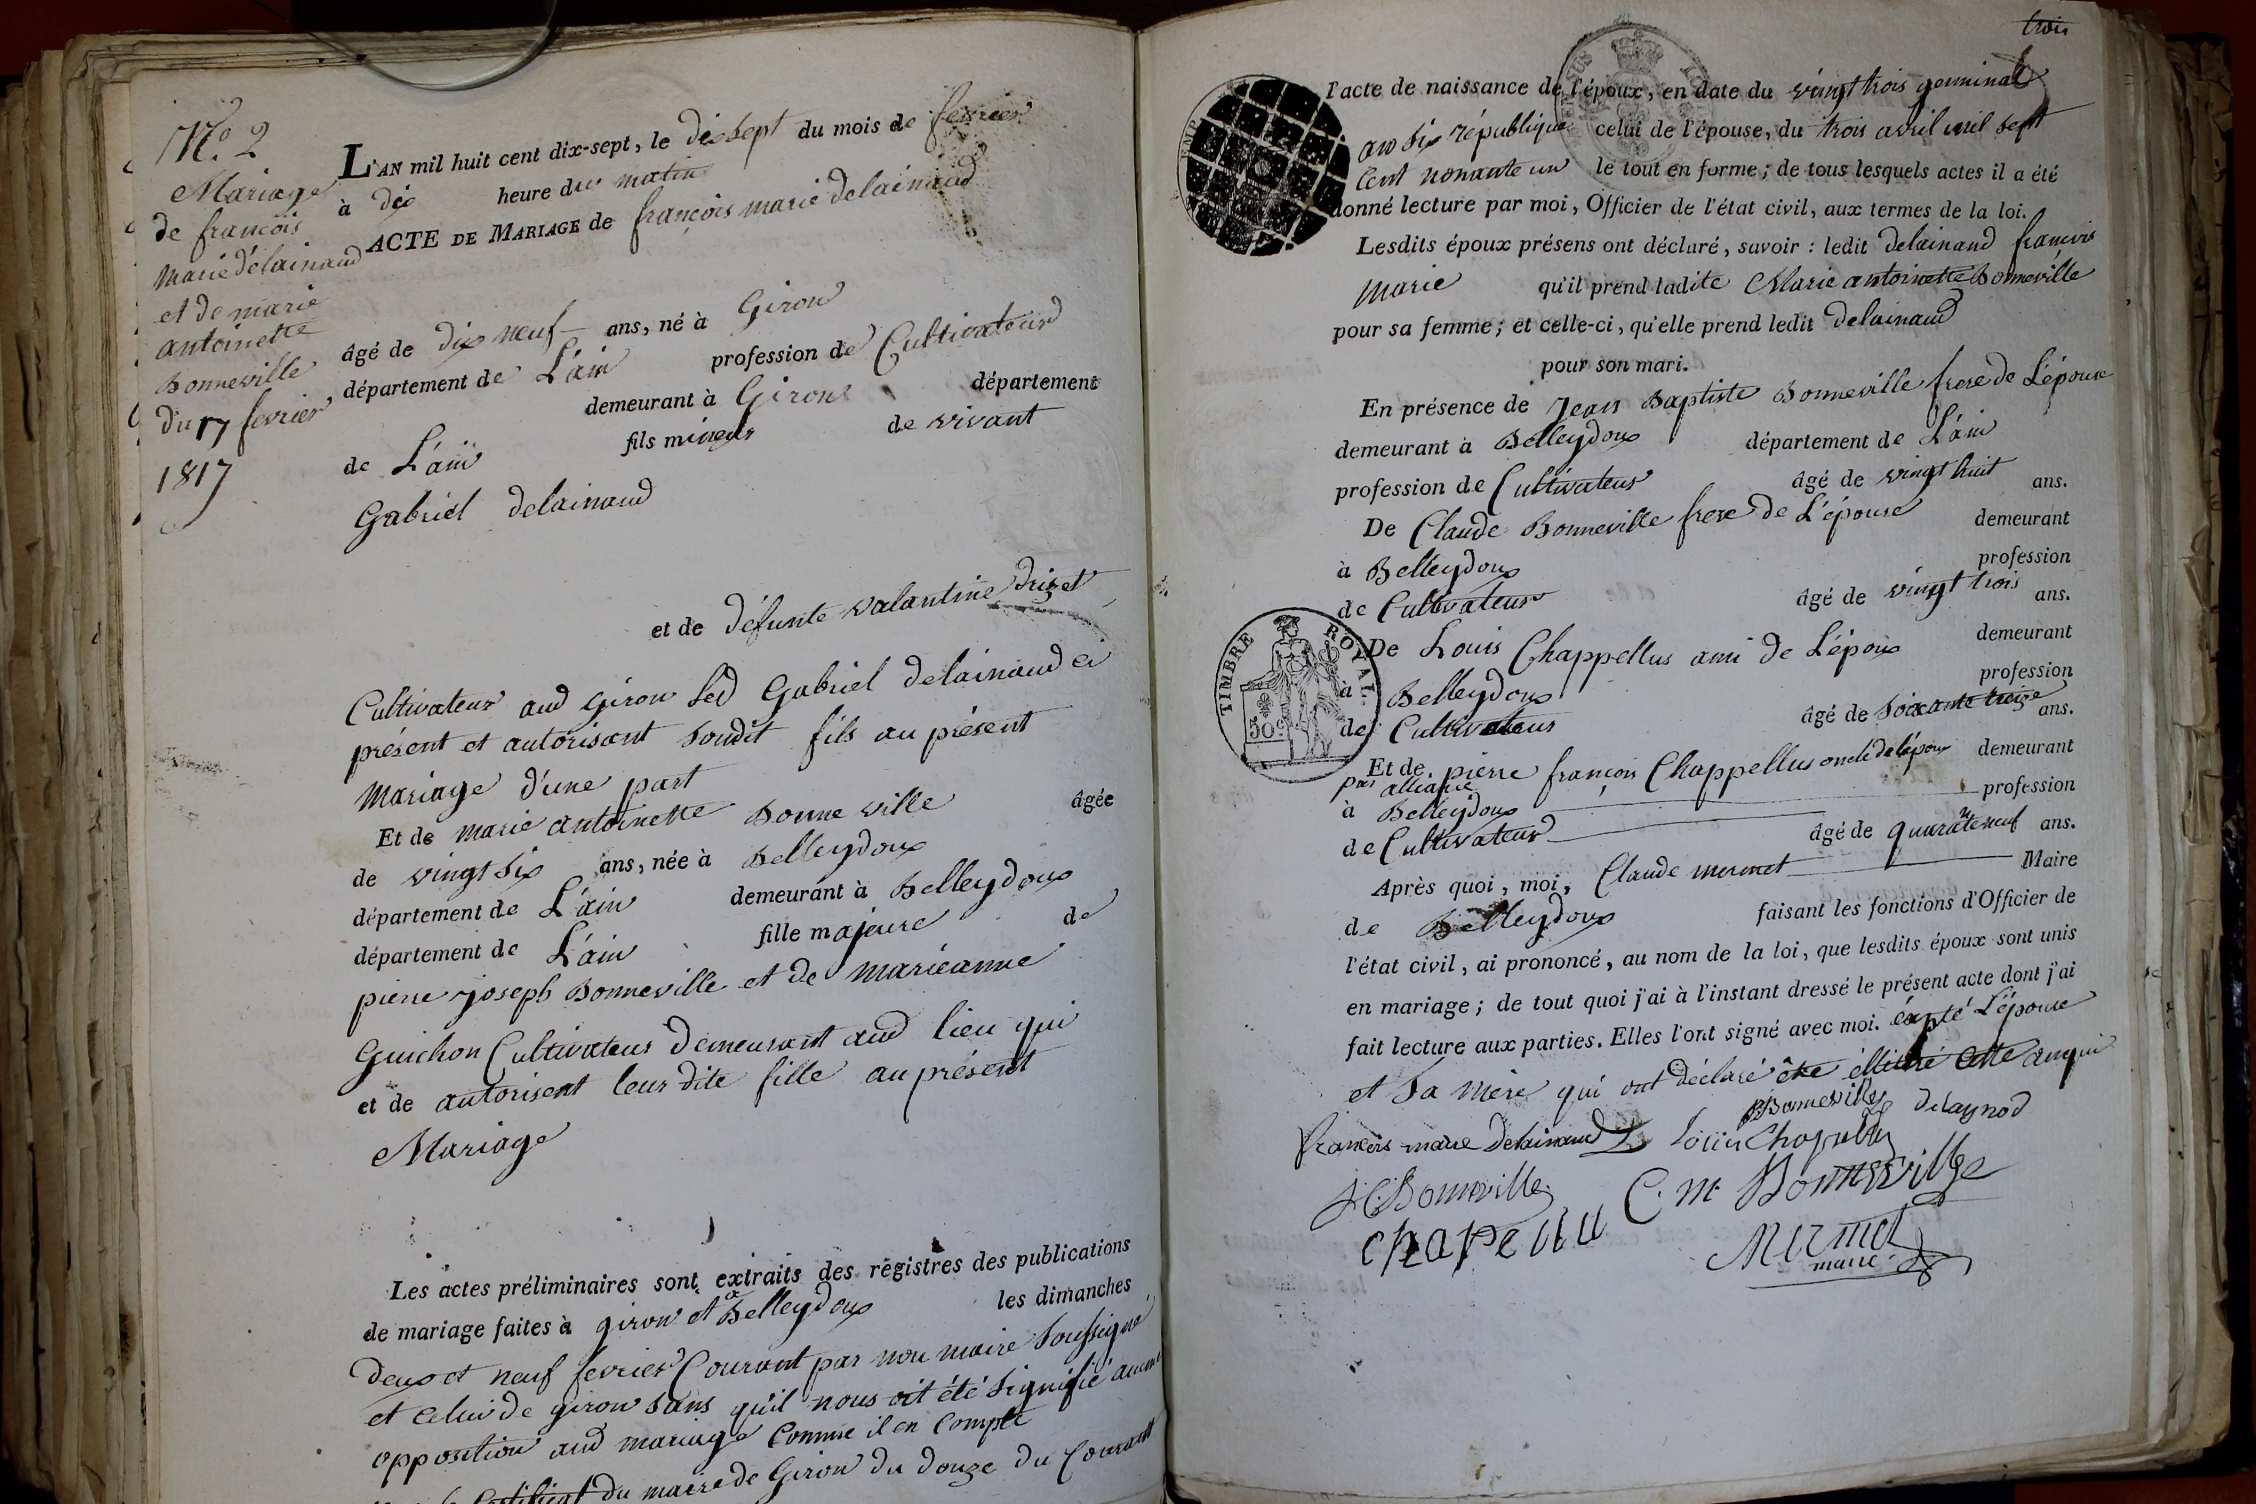 N.o 2
Mariage
de francois
marie delainaud
et de marie
antoinette
Bonneville
du 17 fevrier
1817
L'AN mil huit cent dix-sept, le dix sept du mois de fevrier
à dix heure du matin
ACTE DE MARIAGE de françois marie delainaud
âgé de dix neuf ans, né à Giron
département de L'ain profession de Cultivateur
demeurant à Giron département
de L'ain fils mineur de vivant
Gabriel delainaud
et de défunte valantine
Cultivateur aud giron led Gabriel delainaud ci
présent et autorisant sondit fils au présent
Mariage d'une part
Et de marie antoinette Bonneville âgée
de vingt six ans, née à Belleydoux
département de L'ain demeurant à Belleydoux
département de L'ain fille majeure de
pierre joseph Bonneville et de marieanne
Guichon Cultivateur demeurant aud lieu qui
et de autorisent leur dite fille au présent
Mariage
Les actes préliminaires sont extraits des régistres des publications
de mariage faites à giron et a Belleydoux les dimanches
deux et neuf fevrier Courant par nou maire soussigné
et celui de giron sans qu'il nous ait été signifié aucune
opposition aud mariage Comme il en Compte
certificat du maire de Giron du douze du Courant
trois
l'acte de naissance de l'époux, en date du vingt trois germinal
an six république celui de l'épouse, du trois avril mil sept
Cent nonante un le tout en forme; de tous lesquels actes il a été
donné lecture par moi, Officier de l'état civil, aux termes de la loi.
Lesdits époux présens ont déclaré, savoir: ledit delainaud francois
Marie qu'il prend ladite Marie antoinette Bonneville
pour sa femme; et celle-ci, qu'elle prend ledit delainaud
pour son mari.
En présence de Jean Baptiste Bonneville frere de L'épouse
demeurant à Belleydoux département de L'ain
profession de Cultivateur âgé de vingt huit ans.
De Claude Bonneville frere de L'épouse demeurant
à Belleydoux profession
de Cultivateur âgé de vingt trois ans.
De Louis Chappellus ami de L'époux demeurant
à Belleydoux profession
de Cultivateur âgé de soixante treize ans.
Et de pierre françois Chappellus oncle de l'époux demeurant
par alliance
à Belleydoux profession
de Cultivateur âgé de quarante neuf ans.
Après quoi, moi, Claude mermet Maire
de Belleydoux faisant les fonctions d'Officier de
l'état civil, ai prononcé, au nom de la loi, que lesdits époux sont unis
en mariage; de tout quoi j'ai à l'instant dressé le présent acte dont j'ai
fait lecture aux parties. Elles l'ont signé avec moi. éxpté L'épouse
et sa mère qui ont déclaré être
TIMBRE ROYAL
50c
Bonneville delaynod
francois marie delainaud Louis Chapellu
Bonneville C. m. Bonneville
chapellu
Mermet
maire